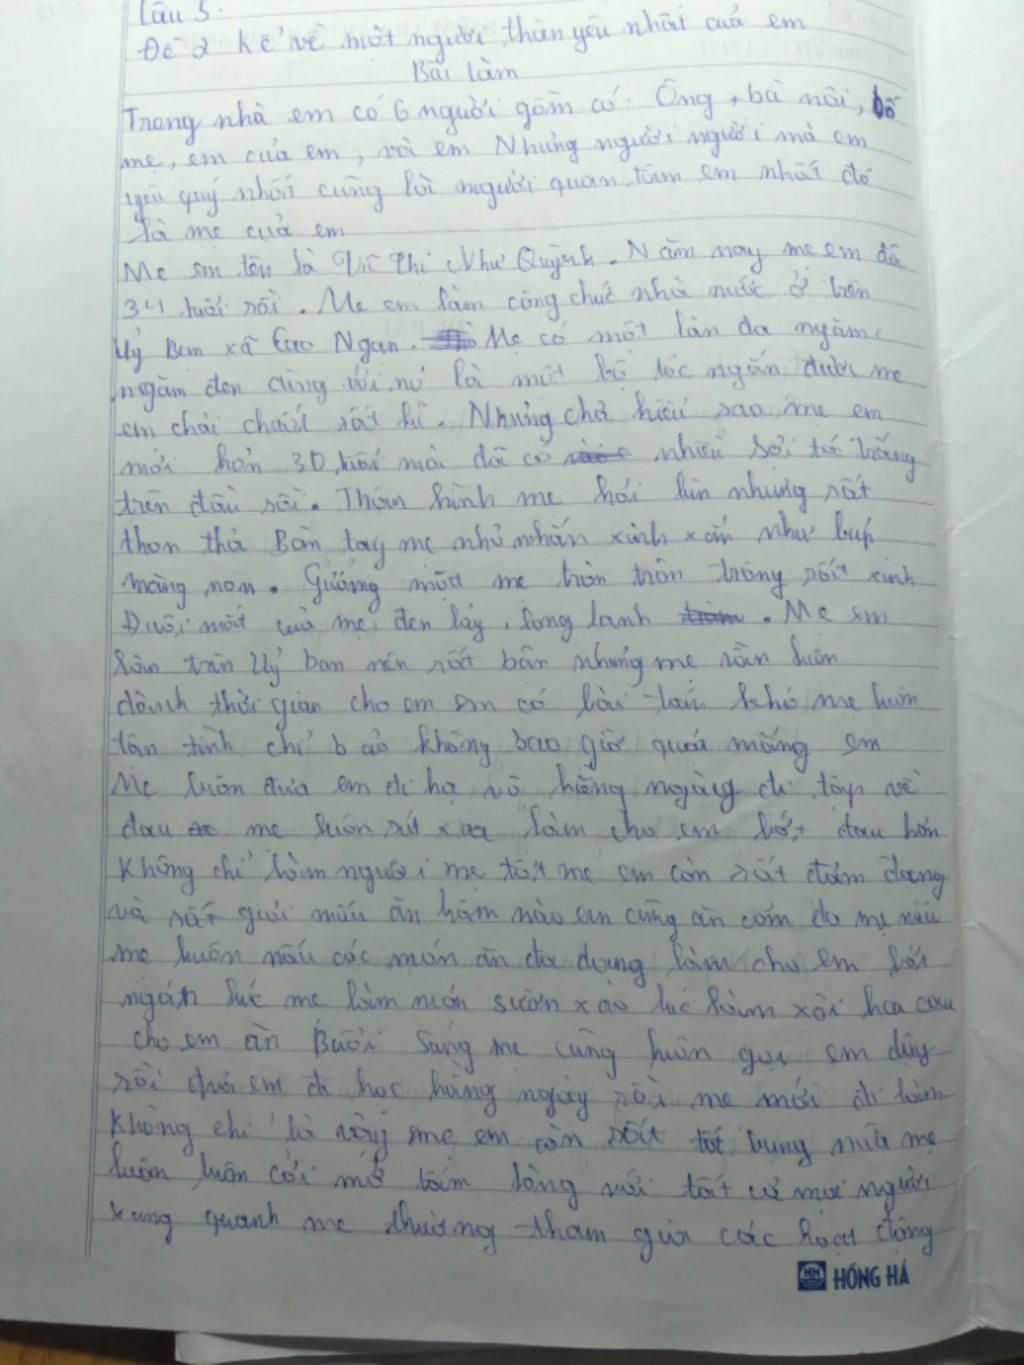 Câu 5:
Đề 2 Kể về một người thân yêu nhất của em
Bài làm
Trong nhà em có 6 người gồm có: Ông, bà nội, bố
mẹ, em của em, và em Nhưng người người mà em
yêu quý nhất cũng là người quan tâm em nhất đó
là mẹ của em
Mẹ em tên là Vũ Thị Như Quỳnh. Năm nay mẹ em đã
34 tuổi rồi. Mẹ em làm công chức nhà nước ở trên
Uỷ Ban xã Cao Ngạn. Mẹ có một làn da ngăm
ngăm đen cùng với nó là một bộ tóc ngắn được mẹ
em chải chuốt rất kĩ. Nhưng chả hiểu sao mẹ em
mới hơn 30 tuổi mà đã có nhiều sợi tóc trắng
trên đầu rồi. Thân hình mẹ hơi lùn nhưng rất
thon thả Bàn tay mẹ nhỏ nhắn xinh xắn như búp
măng non. Gương mặt mẹ tròn tròn trông rất xinh
Đuôi mắt của mẹ đen láy, long lanh. Mẹ em
làm trên Uỷ ban nên rất bận nhưng mẹ vẫn luôn
dành thời gian cho em em có bài toán khó mẹ luôn
tận tình chỉ bảo không bao giờ quát mắng em
Mẹ luôn đưa em đi họ võ hằng ngày đi tập về
đau mẹ luôn xoa làm cho em bớt đau hơn
Không chỉ làm người mẹ tốt mẹ em còn rất đảm đang
và rất giỏi nấu ăn hôm nào em cũng ăn cơm do mẹ nấu
mẹ luôn nấu các món ăn đa dạng làm cho em bớt
ngán lúc mẹ làm món sườn xào lúc làm xôi hoa cau
cho em ăn Buổi sáng mẹ cũng luôn gọi em dậy
rồi đưa em đi học hằng ngày rồi mẹ mới đi làm
Không chỉ là vậy mẹ em còn rất tốt bụng nữa mẹ
luôn luôn cởi mở tấm lòng với tất cả mọi người
xung quanh mẹ thường tham gia các hoạt động
HỒNG HÀ